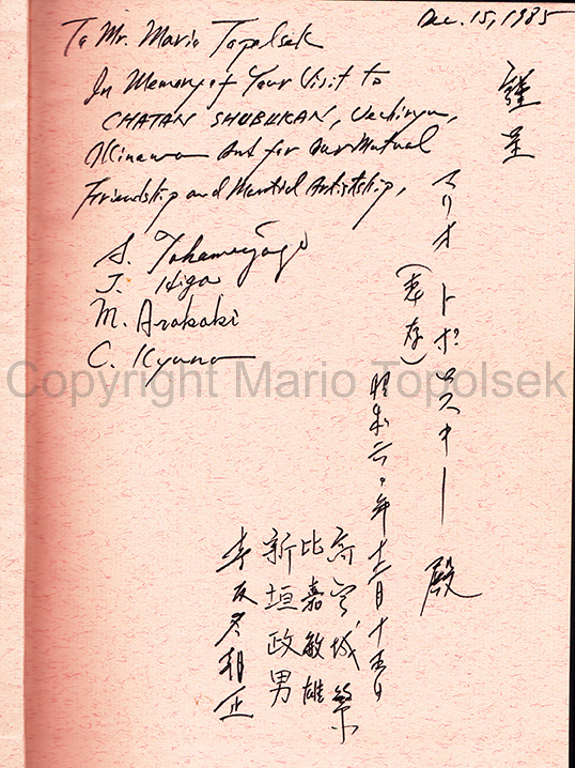 Dec. 15, 1985
To Mr. Mario Topolsek
In Memory of Your Visit to
CHATAN SHUBUKAN, Uechiryu,
Okinawa and for Our Mutual
Friendship and Martial Artistship,
S. Takamiyagi
J. Higa
M. Arakaki
C. Kyuna
謹呈
マリオ トポロスキー 殿
(恵存)
昭和六〇年十二月十五日
高宮城 繁
比嘉敏雄
新垣政男
喜友名朝正
Copyright Mario Topolsek